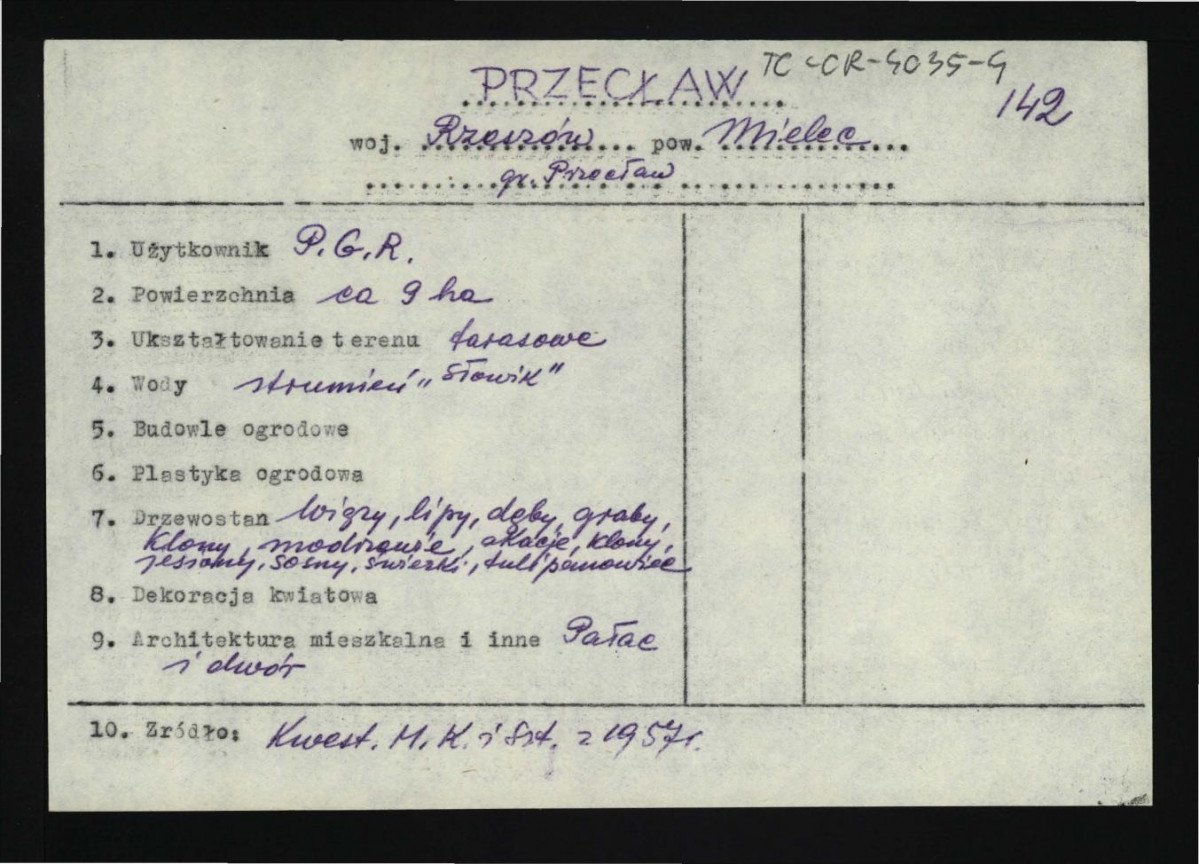 TC-CR-4035-4
PRZECŁAW
142
woj. Rzeszów pow. Mielec
gr. Przecław
1. Użytkownik P.G.R.
2. Powierzchnia ca 9 ha
3. Ukształtowanie terenu tarasowe
4. Wody strumień "Słowik"
5. Budowle ogrodowe
6. Plastyka ogrodowa
7. Drzewostan wiązy, lipy, dęby, graby,
klony, modrzewie, akacje, klony,
jesiony, sosny, świerki, tulipanowiec
8. Dekoracja kwiatowa
9. Architektura mieszkalna i inne Pałac
i dwór
10. Zródło: Kwest. M.K. i Szt. z 1957r.